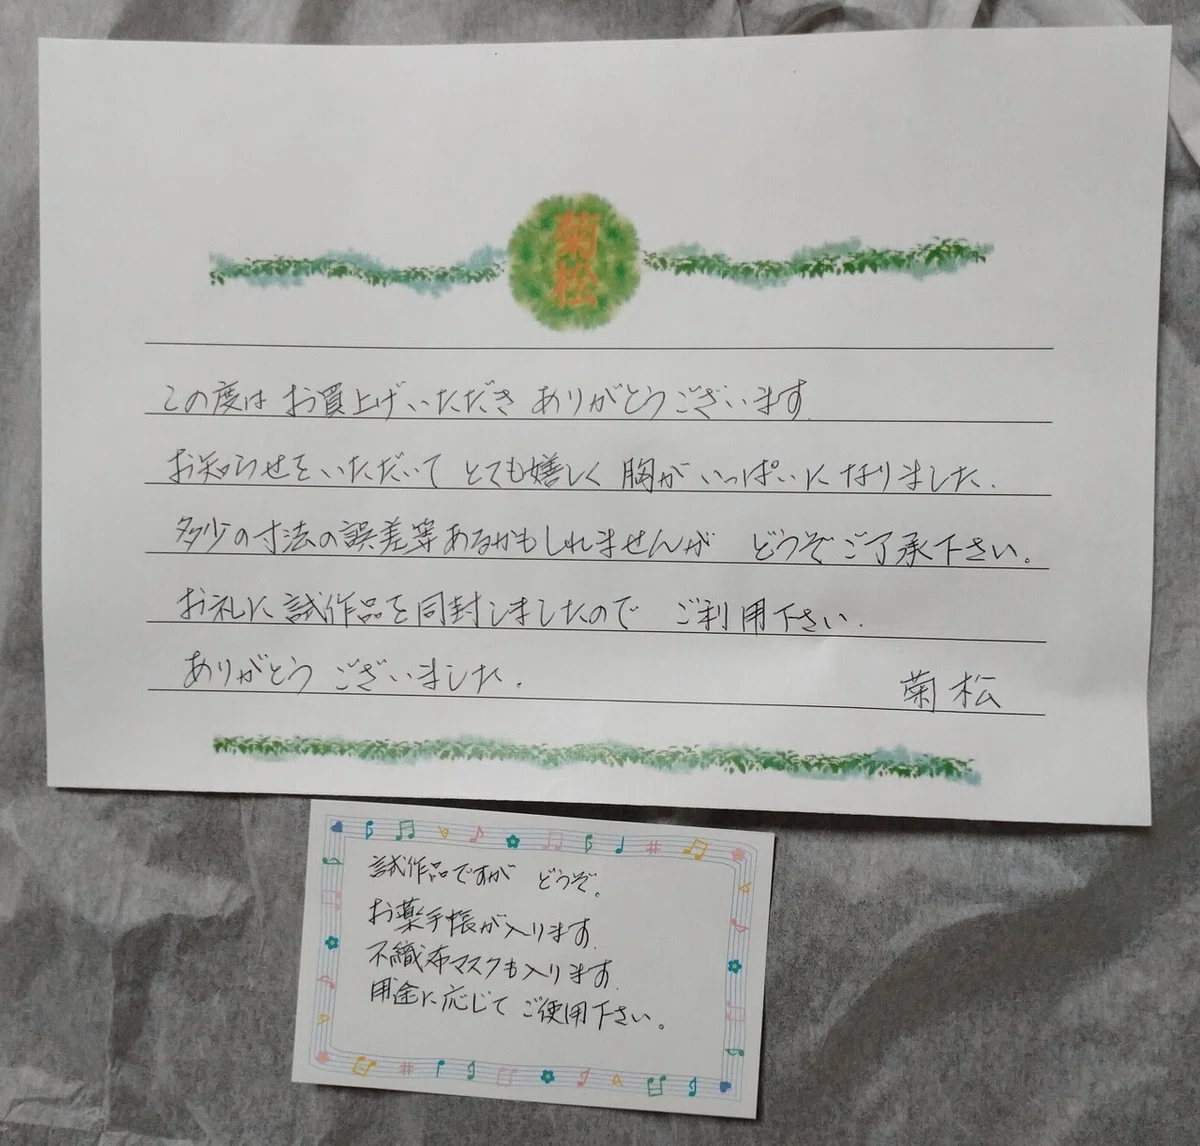 菊松
この度は お買上げいただき ありがとうございます.
お知らせをいただいて とても嬉しく 胸が いっぱいに なりました.
多少の寸法の誤差等あるかもしれませんが どうぞご了承下さい。
お礼に 試作品を同封しましたので ご利用下さい.
ありがとう ございました.
菊松
試作品ですが どうぞ。
お薬手帳が入ります.
不織布マスクも入ります.
用途に応じて ご使用下さい。